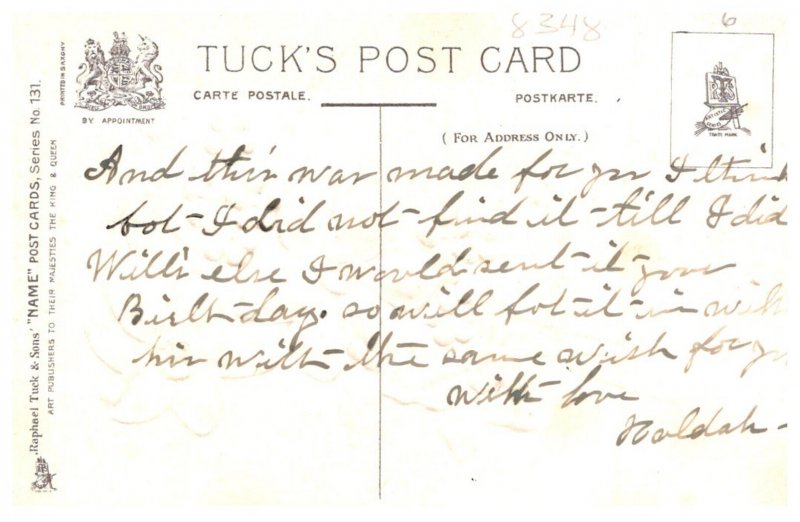 8348
6
TUCK'S POST CARD
CARTE POSTALE.
POSTKARTE.
BY APPOINTMENT
(FOR ADDRESS ONLY.)
TRADE MARK
PRINTED IN SAXONY
Raphael Tuck & Sons' "NAME" POST CARDS, Series No. 131.
ART PUBLISHERS TO THEIR MAJESTIES THE KING & QUEEN
And this was made for you I think
but I did not find it till I did
Will's else I would sent it your
Birthday. so will put it in with
his with the same wish for you
with love
Huldah